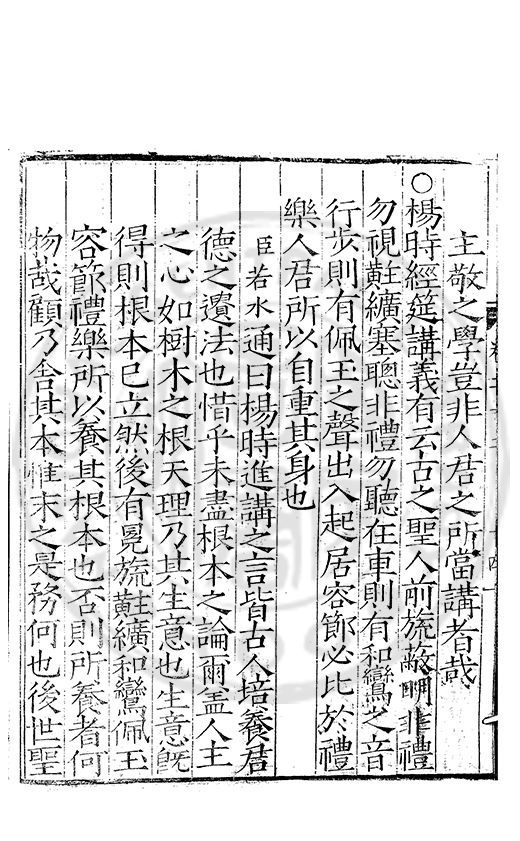 主敬之學豈非人君之所當講者哉
○楊時經筵講義有云古之聖人前旒蔽明非禮
勿視黈纊塞聰非禮勿聽在車則有和鸞之音
行步則有佩玉之聲出入起居容節必比於禮
樂人君所以自重其身也
臣若水通曰楊時進講之言皆古人培養君
德之遺法也惜乎未盡根本之論爾盖人主
之心如樹木之根天理乃其生意也生意旣
得則根本巳立然後有冕旒黈纊和鸞佩玉
容節禮樂所以養其根本也否則所養者何
物哉顧乃舍其本惟末之是務何也後世聖